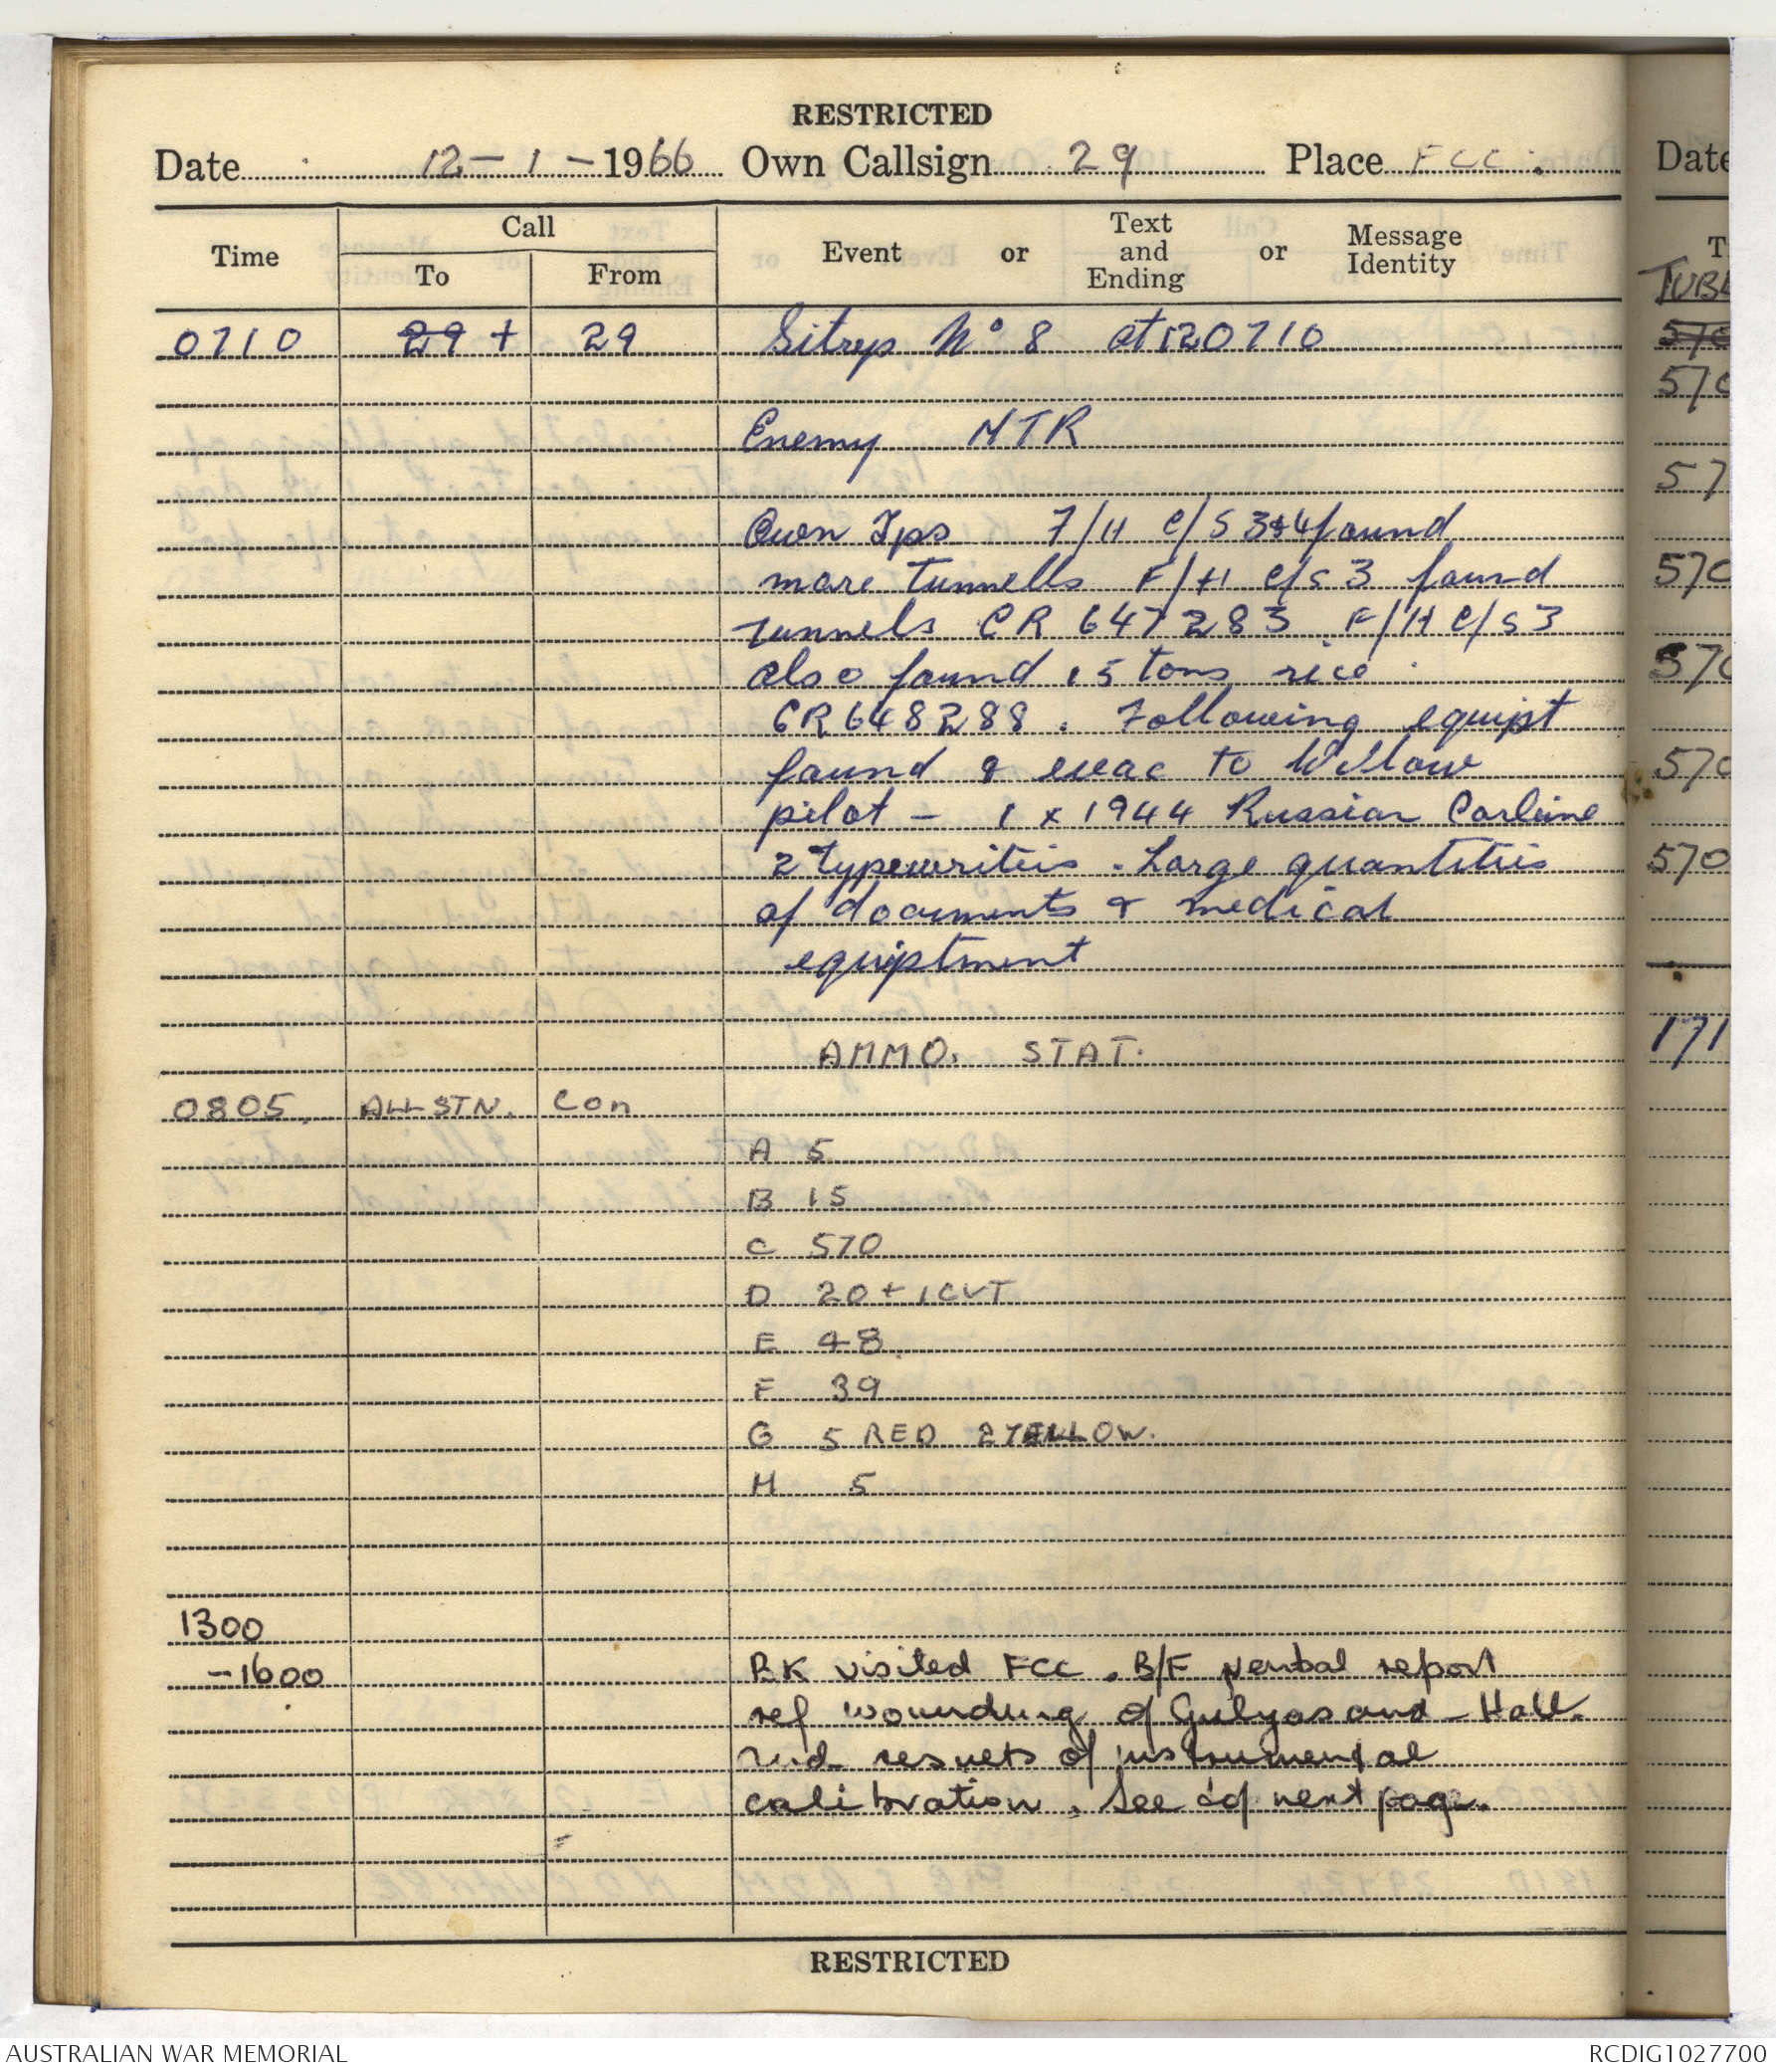 RESTRICTED
Date 12 - 1 - 1966 Own Callsign 29 Place FCC.
Call
Time To From Event or Text and Ending or Message Identity
0710 29 + 29 Sitrep No 8 at 120710
Enemy NTR
Own Tps 7/H C/S 3&4 found
more Tunnells F/H C/S 3 found
tunnels CR 647283. F/H C/S 3
also found 15 tons rice
CR 648288. Following equipt
found & evac to Willow
pilot - 1 x 1944 Russian Carbine
2 typewriters. Large quantities
of documents & medical
equiptment
AMMO. STAT.
0805. ALL STN. Con
A 5
B 15
C 570
D 20 + 1 CVT
E 48.
F 39
G 5 RED 2 YELLOW.
H 5
1300
-1600 BK visited FCC. B/F verbal report
ref wounding of Gulyas and - Hall.
and results of instrumental
calibration. See next page.
RESTRICTED
Date
T
TUBE
570
570
57
570
570
570
570
171
AUSTRALIAN WAR MEMORIAL RCDIG1027700